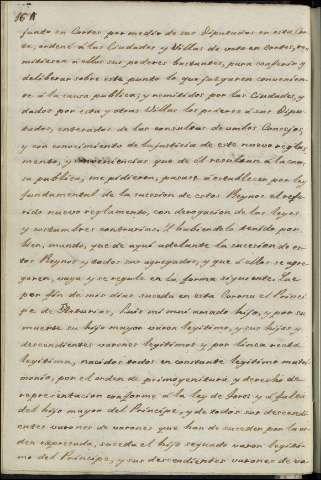 16
junto en Cortes por medio de sus Diputados en esta Cor-
te, ordené à las Ciudades y Villas de voto en Cortes, re-
mitiesen à ellos sus poderes bastantes, para conferir y
deliberar sobre este punto lo que juzgaren convenien-
te à la causa publica; y remitidos por las Ciudades, y
dados por esta y otras Villas los poderes à sus Dipu-
tados, enterados de las consultas de ambos Consejos,
y con conocimiento de la justicia de este nuevo regla-
mento, y conveniencias que de él resultan à la cau-
sa publica, me pidieron, pasase à establecer por ley
fundamental de la sucesion de estos Reynos el refe-
rido nuevo reglamento, con derogacion de las leyes
y costumbres contrarias. Y habiendolo tenido por
bien, mando, que de aqui adelante la sucesion de es-
tos Reynos y todos sus agregados, y que à ellos se agre-
garen, vaya y se regule en la forma siguiente. Que
por fin de mis dias suceda en esta Corona el Princi-
pe de Asturias, Luis mi mui amado hijo, y por su
muerte su hijo mayor varon legitimo, y sus hijos y
descendientes varones legitimos y por linea recta
legitima, nacidos todos en constante legitimo matri-
monio, por el orden de primogenitura y derecho de
representacion conforme à la ley de Toro; y à falta
del hijo mayor del Principe, y de todos sus descendi-
entes varones de varones que han de suceder por la or-
den expresada, suceda el hijo segundo varon legiti-
mo del Principe, y sus descendientes varones de va-